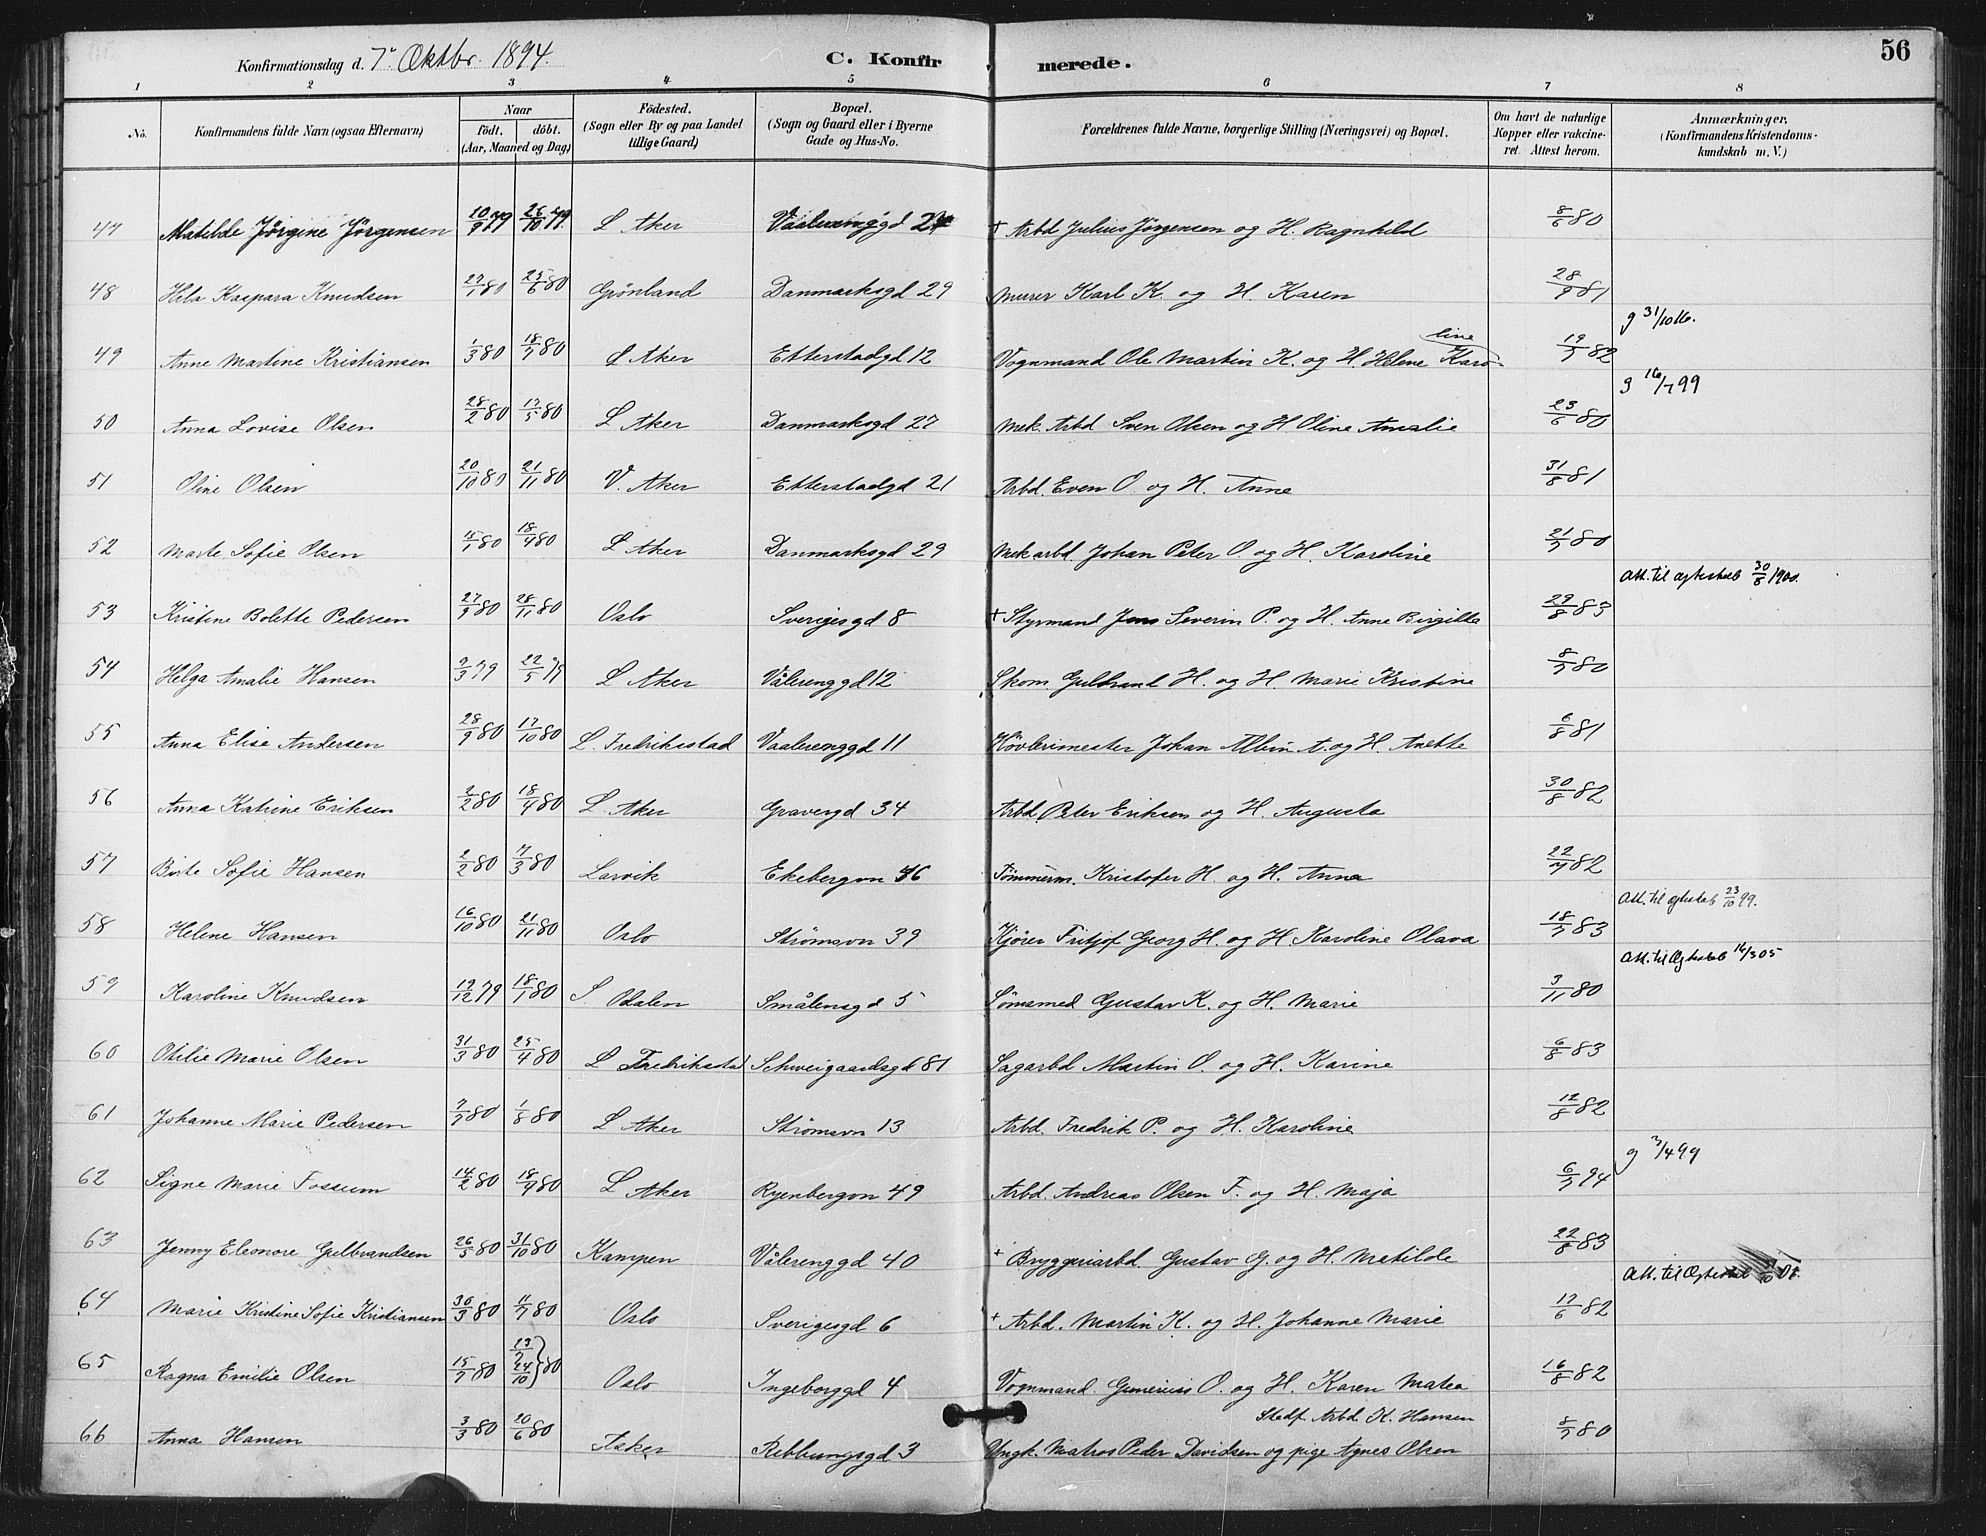 Konfirmationsdag d. 7de Oktbr. 1894. C. Konfirmerede. 56
1 2 3 4 5 6 7 8
No. Konfirmandens fulde Navn (ogsaa Efternavn) Naar födt. döbt. (Aar, Maaned og Dag) Födested. (Sogn eller By og paa Landet tillige Gaard) Bopæl. (Sogn og Gaard eller i Byerne Gade og Hus-No. Forældrenes fulde Navne, borgerlige Stilling (Næringsvei) og Bopæl. Om havt de naturlige Kopper eller vakcineret. Attest herom. Anmærkninger. (Konfirmandens Kristendomskundskab m. V.)
47 Matilde Jørgine Jørgensen 10/9 79 26/10 79. L Aker Vaalerenggd 24 + Arbd Julius Jørgensen og H. Ragnhild 8/6 80
48 Hela Kaspara Knudsen 27/1 80 25/6 80 Grönland Danmarksgd 29 Murer Karl K. og H. Karen 28/9 81
49 Anne Martine Kristiansen 1/3 80 18/7 80 L Aker Etterstadgd 12 Vognmand Ole Martin K. og H. Helene Karoline 19/7 82 g 31/10 16.
50 Anna Lovise Olsen 28/2 80 17/5 80 L Aker Danmarksgd 27 Mek. Arbd Sven Olsen og H Oline Amalie 23/6 80 g 16/7 99
51 Oline Olsen 20/10 80 21/11 80 V. Aker Etterstadgd 21 Arbd. Even O. og H. Anne 31/8 81
52 Marte Sofie Olsen 4/1 80 18/4 80 L Aker Danmarksgd 29 Mek arbd. Johan Peter O. og H. Karoline 21/7 80
53 Kristine Bolette Pedersen 27/9 80 28/11 80 Oslo Sverigesgd 8 + Styrmand Jens Severin P. og H. Anne Birgitte 29/8 83 Att. til ægteskab 30/8 1900.
54 Helga Amalie Hansen 9/3 79 22/5 79 L Aker Vålerenggd 12 Skom. Gulbrand H. og H. Marie Kristine 8/7 80
55 Anna Elise Andersen 28/9 80 17/10 80 L. Fredriksstad Vaalerenggd 11 Høvlerimester Johan Albin A. og H. Anette 6/8 81
56 Anna Katrine Eriksen 2/2 80 18/4 80 L. Aker Gravergd 34 Arbd. Peter Eriksen og H. Augusta 30/8 82
57 Birte Sofie Hansen 2/2 80 7/3 80 Larvik Ekebergvn 46 Tømmerm. Kristofer H. og H. Anna 22/7 82
58 Helene Hansen 16/10 80 21/11 80 Oslo Strømsvn 39 Kjører Fritjof Georg H. og H. Karoline Olava 18/7 83 Att. til ægteskab 23/10 99.
59 Karoline Knudsen 19/12 79 18/1 80 S Odalen Smålensgd 5 Sømsmed Gustav K. og H. Marie 3/11 80 Att. til Ægteskab 16/3 05
60 Otilie Marie Olsen 31/3 80 25/4 80 L Fredriksstad Schweigaardsgd 81 Sagarbd Martin O. og H. Karine 6/8 83
61 Johanne Marie Pedersen 7/7 80 1/8 80 L Aker Strømsvn 13 Arbd. Fredrik P. og H. Karoline 12/8 82
62 Signe Marie Fossum 14/2 80 18/9 80 L Aker Ryenbergvn 49 Arbd. Andreas Olsen F. og H. Maja 6/7 94 g 3/4 99
63 Jenny Eleonore Gulbrandsen 26/5 80 31/10 80 Kampen Vålerenggd 40 + Bryggeriarbd Gustav G. og H. Matilde 22/8 83
64 Marie Kristine Sofie Kristiansen 30/3 80 11/7 80 Oslo Sverigesgd 6 + Arbd. Martin K. og H. Johanne Marie 17/6 82 Att. til Ægteskab
65 Ragna Emilie Olsen 15/7 80 23/7 24/10 } 80 Oslo Ingeborggd 4 Vognmand. Gunerius O. og H. Karen Matea 16/8 82
Stedf Arbd. K. Hansen
66 Anna Hansen 3/3 80 20/6 80 Asker Ribbungsgd 3 Ungk. Matros Peder Davidsen og pige Agnes Olsen 8/7 80